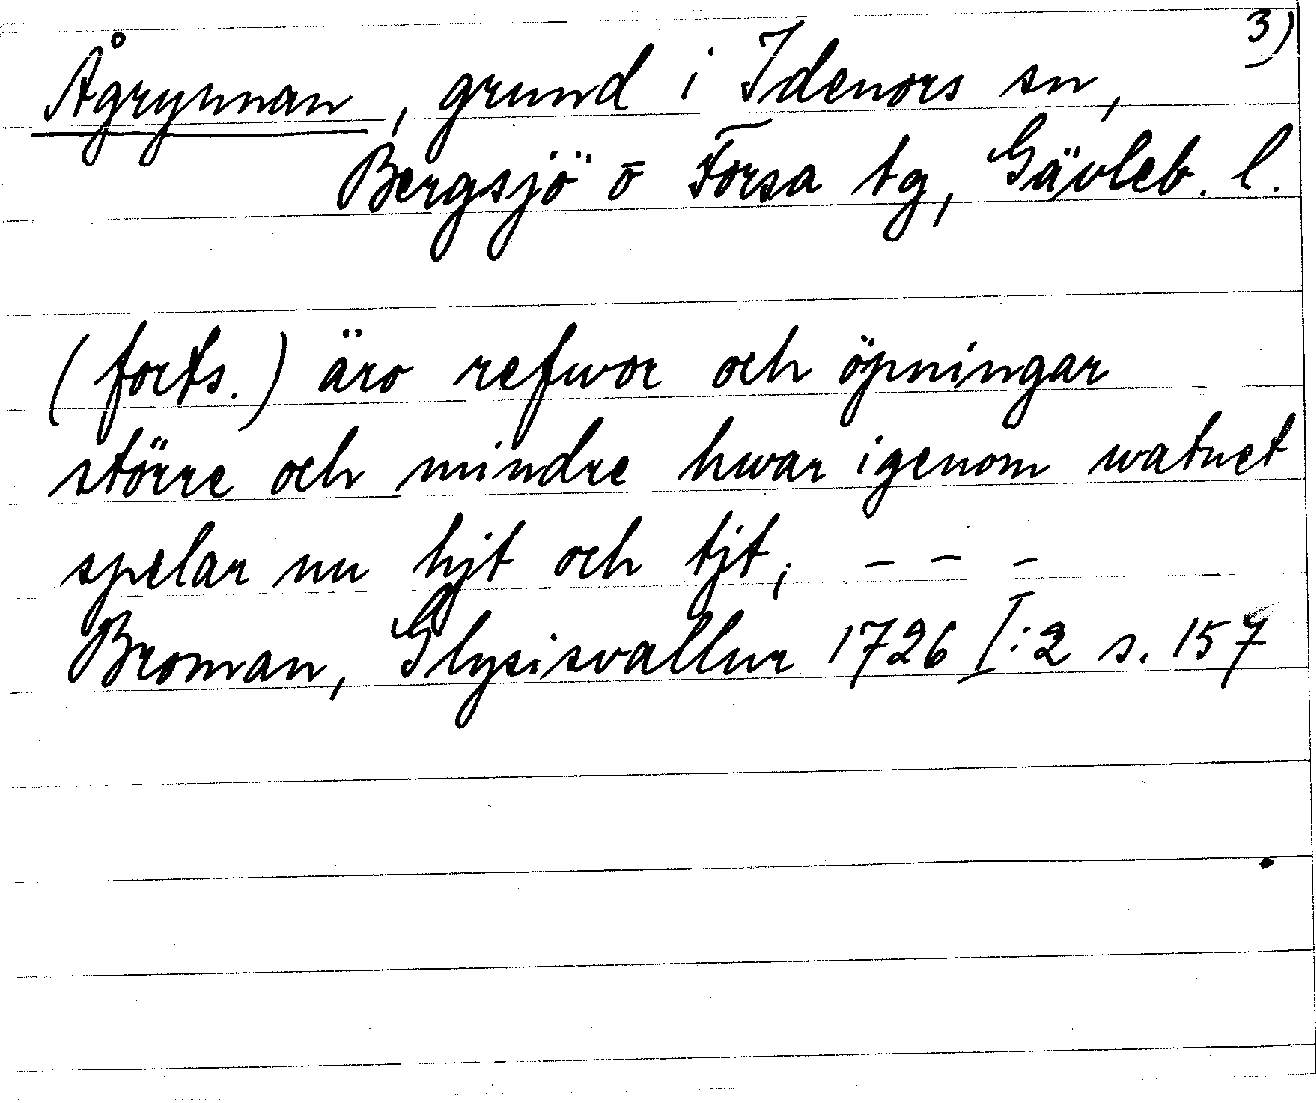 3)
Ågrynnan, grund i Idenors sn,
Bergsjö o Forsa tg, Gävleb. l.
(forts.) äro refwor och öpningar
större och mindre hwar igenom watnet
spelar nu hjt och tjt, - - -
Broman, Glysisvallur 1726 I:2 s. 157